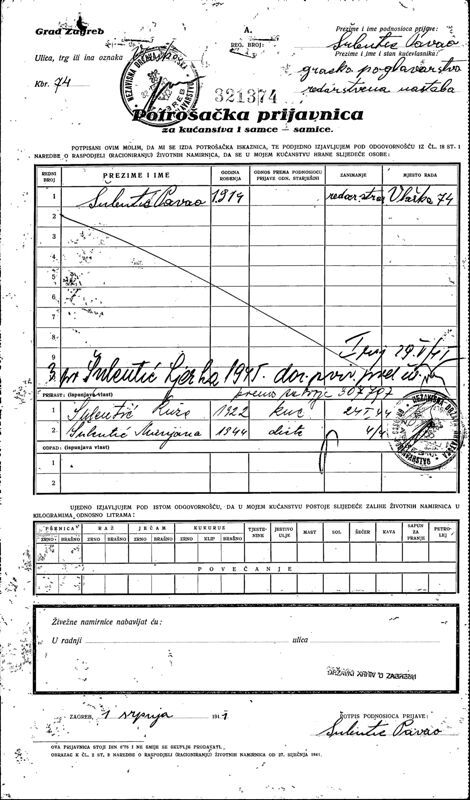 Grad Zagreb
A.
REG. BROJ:
Prezime i ime podnosioca prijave:
Šulentić Pavao
Ulica, trg ili ina oznaka
Prezime i ime i stan kućevlasnika:
gradsko poglavarstvo
Kbr. 74
redarstvena nastaba
321374
Potrošačka prijavnica
za kućanstva i samce — samice.
POTPISANI OVIM MOLIM, DA MI SE IZDA POTROŠAČKA ISKAZNICA, TE PODJEDNO IZJAVLJUJEM POD ODGOVORNOŠĆU IZ ČL. 18 ST. 1
NAREDBE O RASPODJELI (RACIONIRANJU) ŽIVOTNIH NAMIRNICA, DA SE U MOJEM KUĆANSTVU HRANE SLIJEDEĆE OSOBE:
REDNI BROJ PREZIME I IME GODINA ROĐENJA ODNOS PREMA PODNOSIOCU PRIJAVE ODN. STARJEŠINI ZANIMANJE MJESTO RADA
1 Šulentić Pavao 1914 redar. straž Vlaška 74
2
3
4
5
6
7
8
9
3. Šulentić Ljerka 1945.
PRIRAST: (ispunjava vlast) 307797
1 Šulentić Kata 1922 kuć 24 44
2 Šulentić Mirjana 1944 dijete 4/4
OTPAD: (ispunjava vlast)
1
2
UJEDNO IZJAVLJUJEM POD ISTOM ODGOVORNOŠĆU, DA U MOJEM KUĆANSTVU POSTOJE SLIJEDEĆE ZALIHE ŽIVOTNIH NAMIRNICA U
KILOGRAMIMA ODNOSNO LITRAMA:
PŠENICA RAŽ JEČAM KUKURUZ TJESTENINE JESTIVO ULJE MAST SOL ŠEĆER KAVA SAPUN ZA PRANJE PETROLEJ
ZRNO BRAŠNO ZRNO BRAŠNO ZRNO BRAŠNO ZRNO KLIP BRAŠNO
POVEĆANJE
Živežne namirnice nabavljat ću:
U radnji ulica
DRŽAVNI ARHIV U ZAGREBU
ZAGREB, 1 srpnja 1941
POTPIS PODNOSIOCA PRIJAVE:
Šulentić Pavao
OVA PRIJAVNICA STOJI DIN 0'75 I NE SMIJE SE SKUPLJE PRODAVATI.
OBRAZAC K ČL. 2 ST. 3 NAREDBE O RASPODJELI (RACIONIRANJU) ŽIVOTNIH NAMIRNICA OD 27. SIJEČNJA 1941.